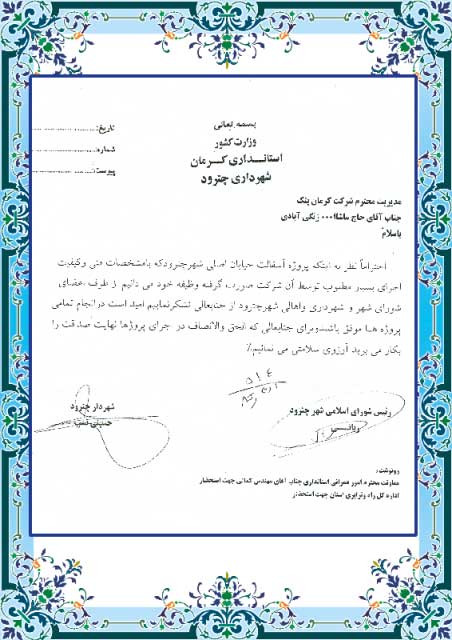 بسمه تعالی
وزارت کشور
استانداری کرمان
شهرداری چترود
تاریخ:
شماره:
پیوست:
مدیریت محترم شرکت کرمان پتک
جناب آقای حاج ماشاا... زنگی آبادی
باسلام
احتراماً نظر به اینکه پروژه آسفالت خیابان اصلی شهرچترودکه بامشخصات فنی وکیفیت
اجرای بسیار مطلوب توسط آن شرکت صورت گرفته وظیفه خود می دانیم از طرف اعضای
شورای شهر و شهرداری واهالی شهرچترود از جنابعالی تشکرنماییم امید است درانجام تمامی
پروژه ها موفق باشیدوبرای جنابعالی که الحق والانصاف در اجرای پروژها نهایت صداقت را
بکار می برید آرزوی سلامتی می نمائیم٪
رئیس شورای اسلامی شهر چترود
شهردار چترود
رونوشت:
معاونت محترم امور عمرانی استانداری جناب آقای مهندس کمالی جهت استحضار
اداره کل راه وترابری استان جهت استحضار